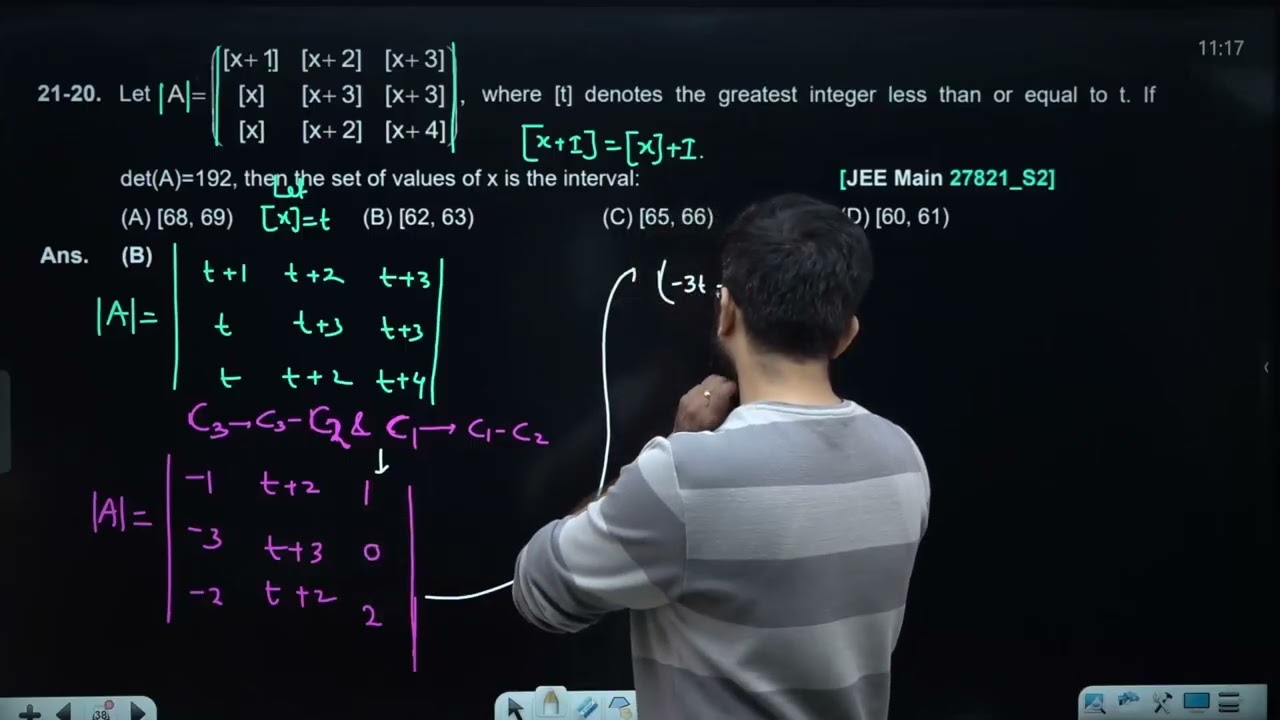 11:17
21-20. Let |A|= [x+1] [x+2] [x+3]
[x] [x+3] [x+3]
[x] [x+2] [x+4]
, where [t] denotes the greatest integer less than or equal to t. If
[x+I]=[x]+I.
det(A)=192, then the set of values of x is the interval:
[JEE Main 27821_S2]
Let
[x]=t
(A) [68, 69) (B) [62, 63) (C) [65, 66) D) [60, 61)
Ans. (B)
|A|= t+1 t+2 t+3
t t+3 t+3
t t+2 t+4
C3→C3-C2 & C1→C1-C2
↓
|A|= -1 t+2 1
-3 t+3 0
-2 t+2 2
(-3t
38